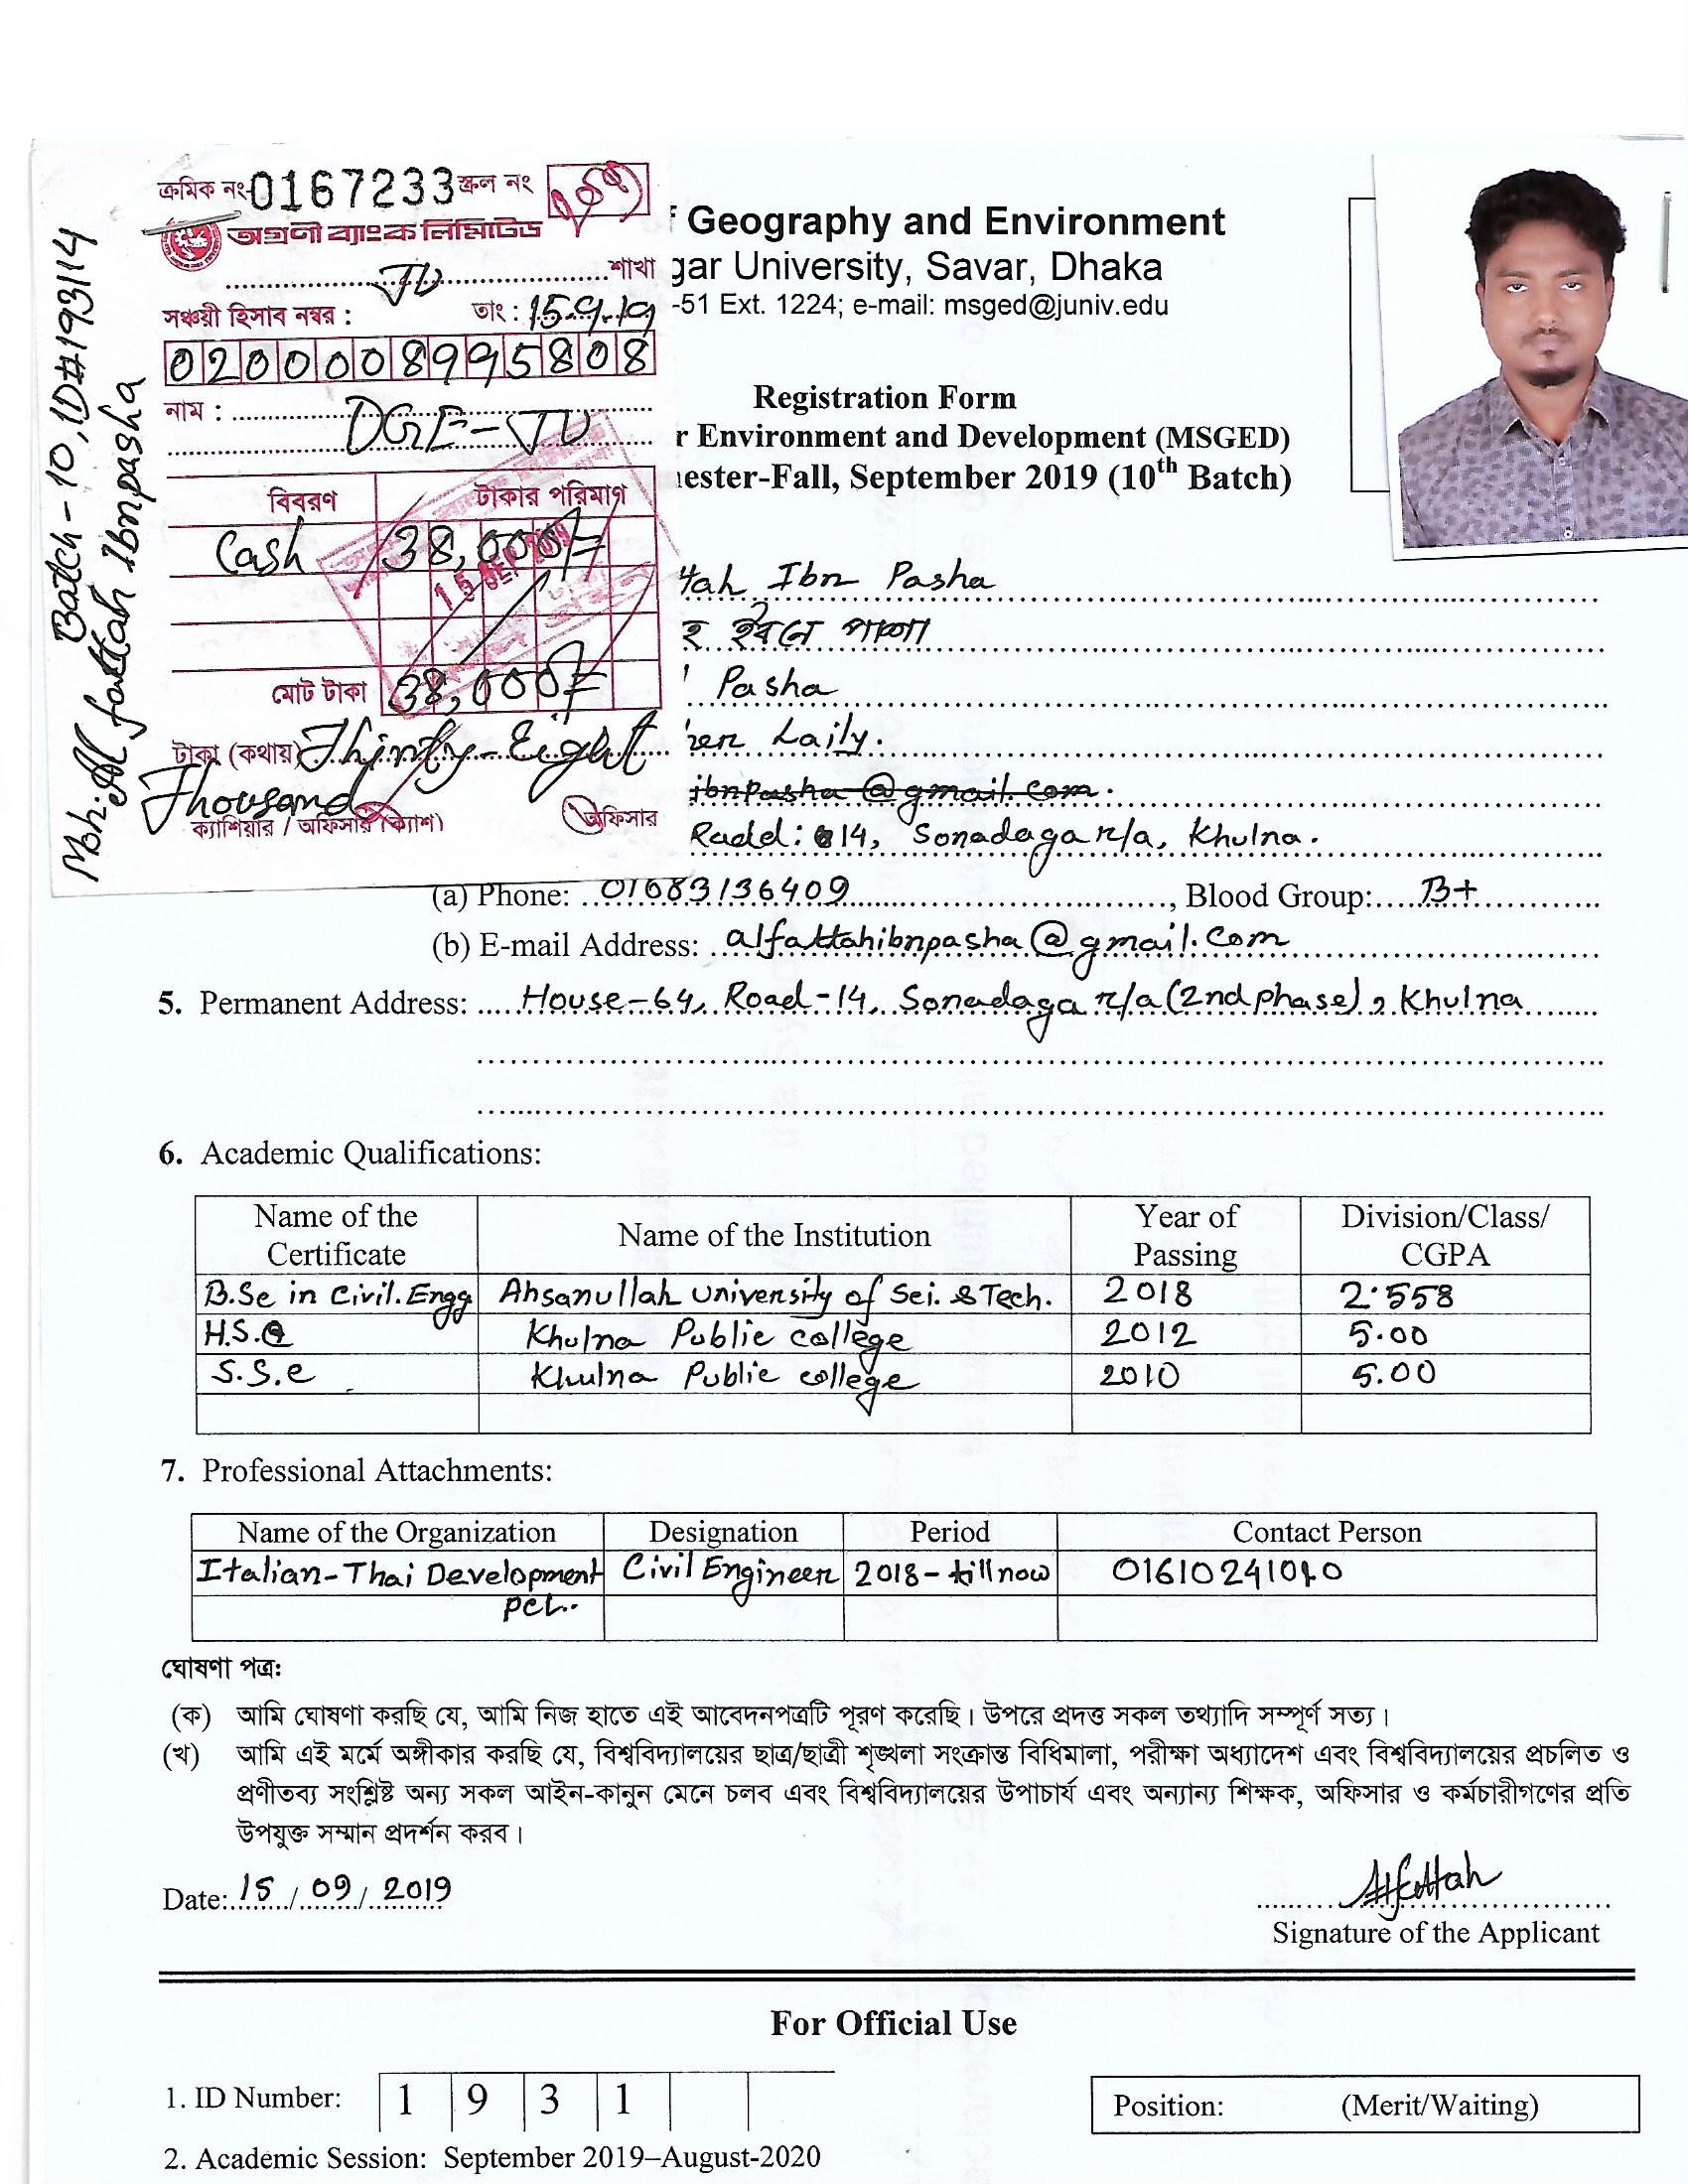 ক্রমিক নং 0167233 স্ক্রল নং
অগ্রণী ব্যাংক লিমিটেড
JU শাখা
সঞ্চয়ী হিসাব নম্বর : তাং : 15.9.19
0200008995808
নাম : DGE-JU
বিবরণ টাকার পরিমাণ
Cash 38,000/=
15 SEP 2019
মোট টাকা 38,000/=
টাকা (কথায়) Thirty-Eight
Thousand
ক্যাশিয়ার / অফিসার (ক্যাশ) অফিসার
Batch-10, ID#193114
Md: Al fattah Ibnpasha
f Geography and Environment
gar University, Savar, Dhaka
-51 Ext. 1224; e-mail: msged@juniv.edu
Registration Form
r Environment and Development (MSGED)
ester-Fall, September 2019 (10th Batch)
ttah Ibn Pasha
হ ইবনে পাশা
Pasha
Laily.
ibnpasha@gmail.com.
Roadd: 14, Sonadaga r/a, Khulna.
(a) Phone: 01683136409, Blood Group: B+
(b) E-mail Address: alfattahibnpasha@gmail.com
5. Permanent Address: House-64, Road-14, Sonadaga r/a (2nd phase), Khulna
6. Academic Qualifications:
Name of the Certificate Name of the Institution Year of Passing Division/Class/ CGPA
B.Sc in Civil.Engg Ahsanullah University of Sci. & Tech. 2018 2.558
H.S.C Khulna Public college 2012 5.00
S.S.c Khulna Public college 2010 5.00
7. Professional Attachments:
Name of the Organization Designation Period Contact Person
Italian-Thai Development Civil Engineer 2018-till now
PCL..
ঘোষণা পত্র:
(ক) আমি ঘোষণা করছি যে, আমি নিজ হাতে এই আবেদনপত্রটি পূরণ করেছি। উপরে প্রদত্ত সকল তথ্যাদি সম্পূর্ণ সত্য।
(খ) আমি এই মর্মে অঙ্গীকার করছি যে, বিশ্ববিদ্যালয়ের ছাত্র/ছাত্রী শৃঙ্খলা সংক্রান্ত বিধিমালা, পরীক্ষা অধ্যাদেশ এবং বিশ্ববিদ্যালয়ের প্রচলিত ও
প্রণীতব্য সংশ্লিষ্ট অন্য সকল আইন-কানুন মেনে চলব এবং বিশ্ববিদ্যালয়ের উপাচার্য এবং অন্যান্য শিক্ষক, অফিসার ও কর্মচারীগণের প্রতি
উপযুক্ত সম্মান প্রদর্শন করব।
Date: 15/09/2019 Alfattah
Signature of the Applicant
For Official Use
1. ID Number: 1 9 3 1 Position: (Merit/Waiting)
2. Academic Session: September 2019–August-2020